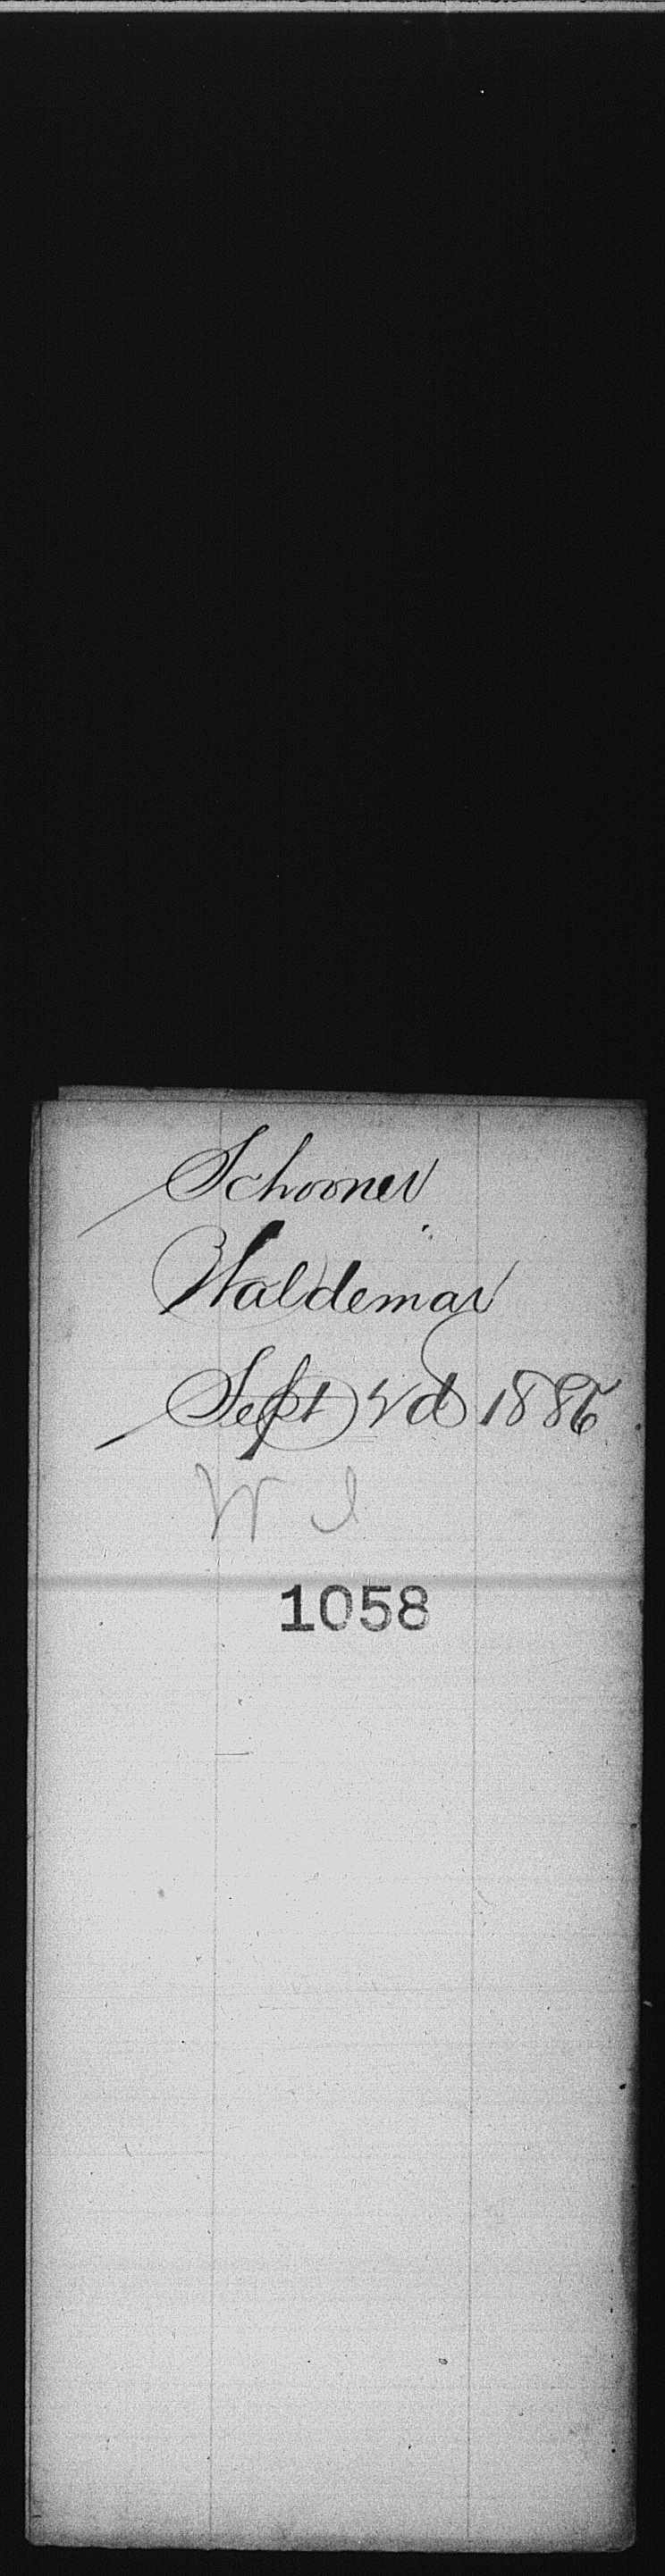 Schooner
Waldemar
Sept 2d 1886
W I
1058